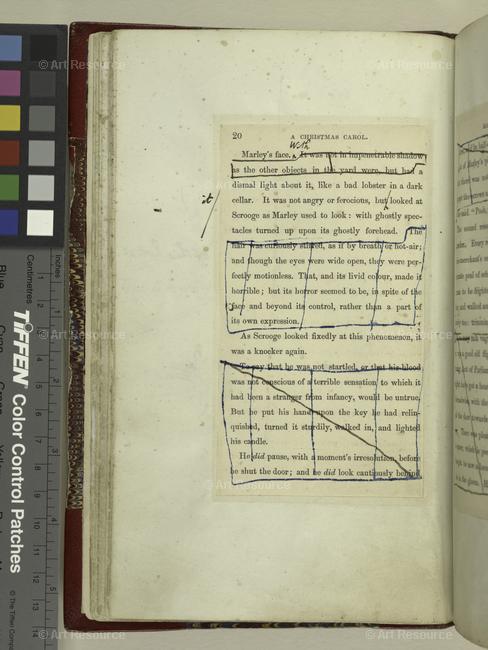 20 A CHRISTMAS CAROL.
With
Marley's face. It was not in impenetrable shadow
as the other objects in the yard were, but had a
dismal light about it, like a bad lobster in a dark
cellar. It was not angry or ferocious, but looked at
it
Scrooge as Marley used to look: with ghostly spec-
tacles turned up upon its ghostly forehead. The
hair was curiously stirred, as if by breath or hot-air;
and though the eyes were wide open, they were per-
fectly motionless. That, and its livid colour, made it
horrible; but its horror seemed to be, in spite of the
face and beyond its control, rather than a part of
its own expression.
As Scrooge looked fixedly at this phenomenon, it
was a knocker again.
To say that he was not startled, or that his blood
was not conscious of a terrible sensation to which it
had been a stranger from infancy, would be untrue.
But he put his hand upon the key he had relin-
quished, turned it sturdily, walked in, and lighted
his candle.
He did pause, with a moment's irresolution, before
he shut the door; and he did look cautiously behind
inches
Centimetres
TIFFEN Color Control Patches
© The Tiffen Company
Blue
Cyan
Green
Yellow
© Art Resource
© Art Resource
© Art Resource
© Art Resource
© Art Resource
© Art Resource
© Art Resource